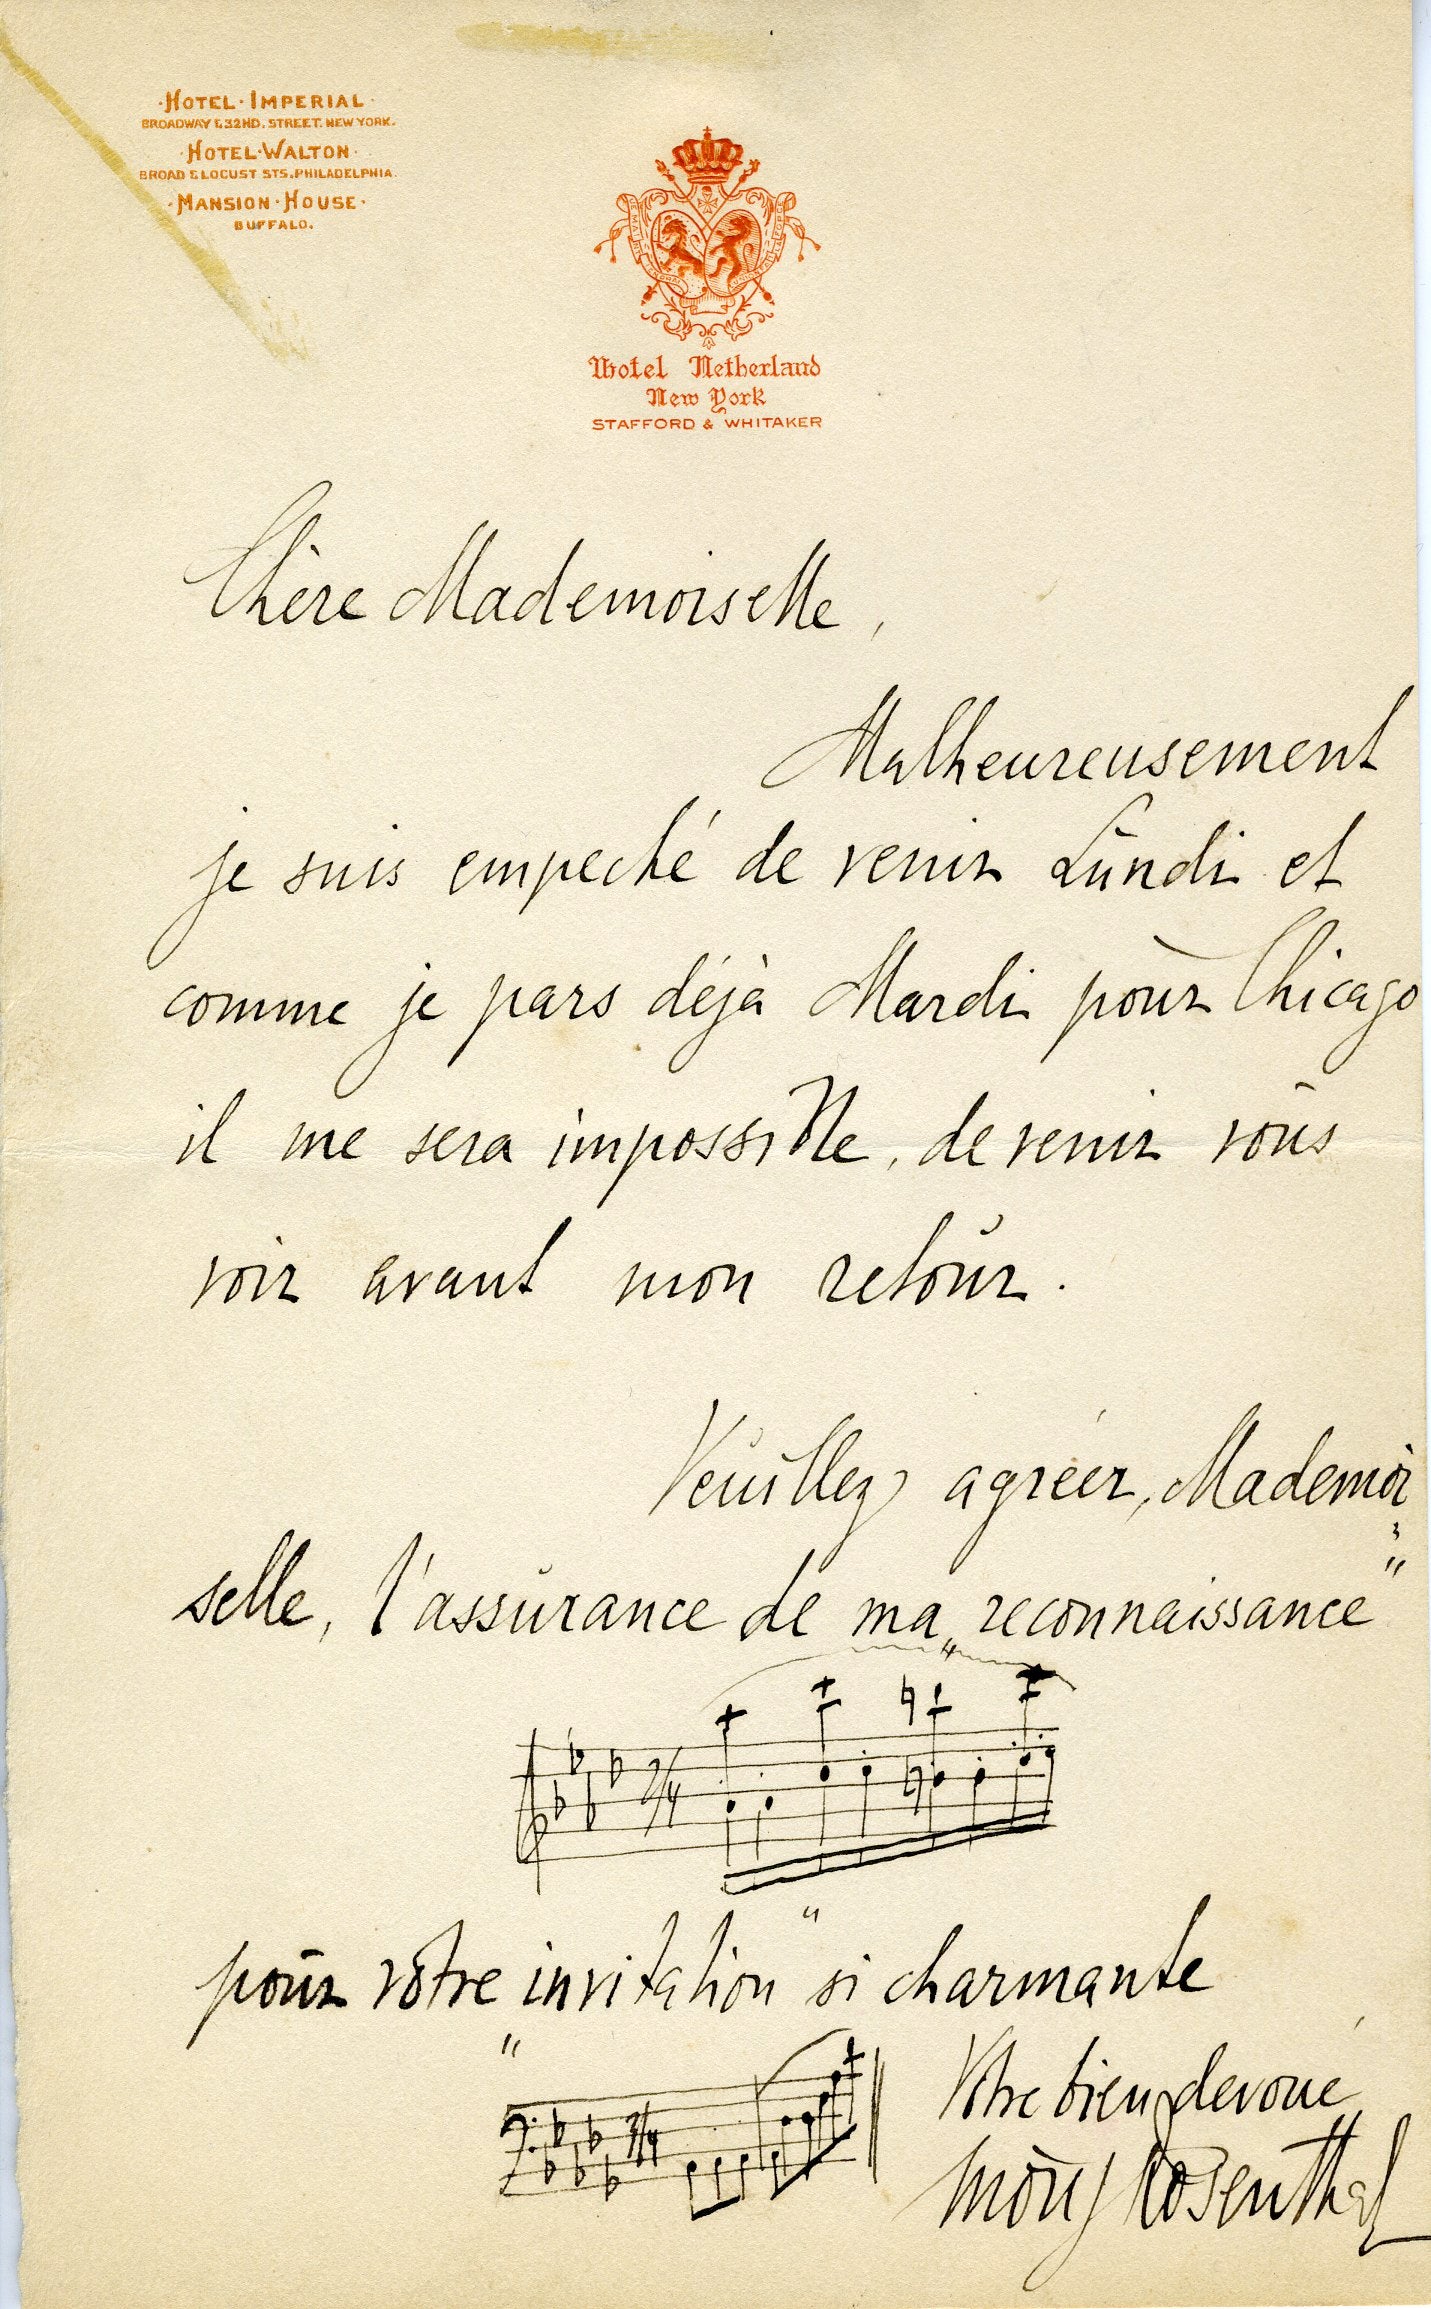 ·HOTEL·IMPERIAL·
BROADWAY & 32ND. STREET. NEW YORK.
·HOTEL·WALTON·
BROAD & LOCUST STS. PHILADELPHIA.
·MANSION·HOUSE·
BUFFALO.
Hotel Netherland
New York
STAFFORD & WHITAKER
Chère Mademoiselle,
Malheureusement
je suis empeché de venir Lundi et
comme je pars déjà Mardi pour Chicago
il me sera impossible, de venir vous
voir avant mon retour.
Veuillez agréer, Mademoi
selle, l'assurance de ma „reconnaissance"
2/4
pour votre invitation "si charmante
"
3/4
Votre bien devoué
Moriz Rosenthal